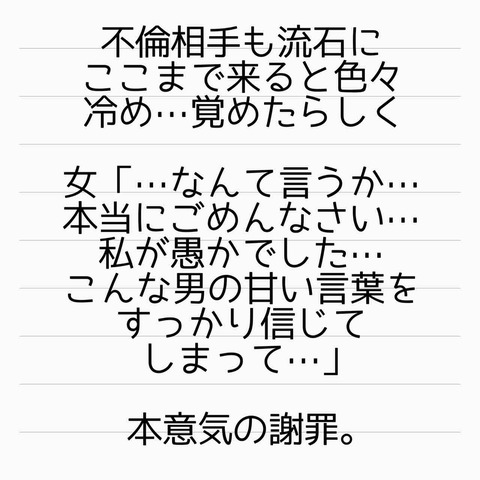 不倫相手も流石に
ここまで来ると色々
冷め…覚めたらしく
女「…なんて言うか…
本当にごめんなさい…
私が愚かでした…
こんな男の甘い言葉を
すっかり信じて
しまって…」
本意気の謝罪。